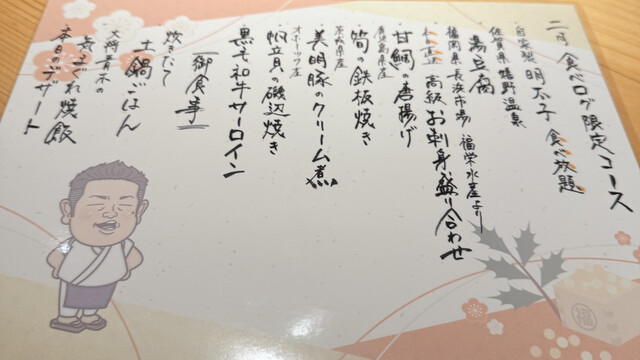 二月 食べログ限定コース
自家製 明太子 食べ放題
佐賀県 嬉野温泉
湯豆腐
福岡県 長浜市場 福栄水産より
高級お刺身盛り合わせ
鹿児島県産
甘鯛の唐揚げ
筍の鉄板焼き
茨城県産
美明豚のクリーム煮
オホーツク産
帆立貝の磯辺焼き
黒毛和牛サーロイン
御食事
炊きたて
土鍋ごはん
大将青木の
気まぐれ焼飯
本日のデザート
福